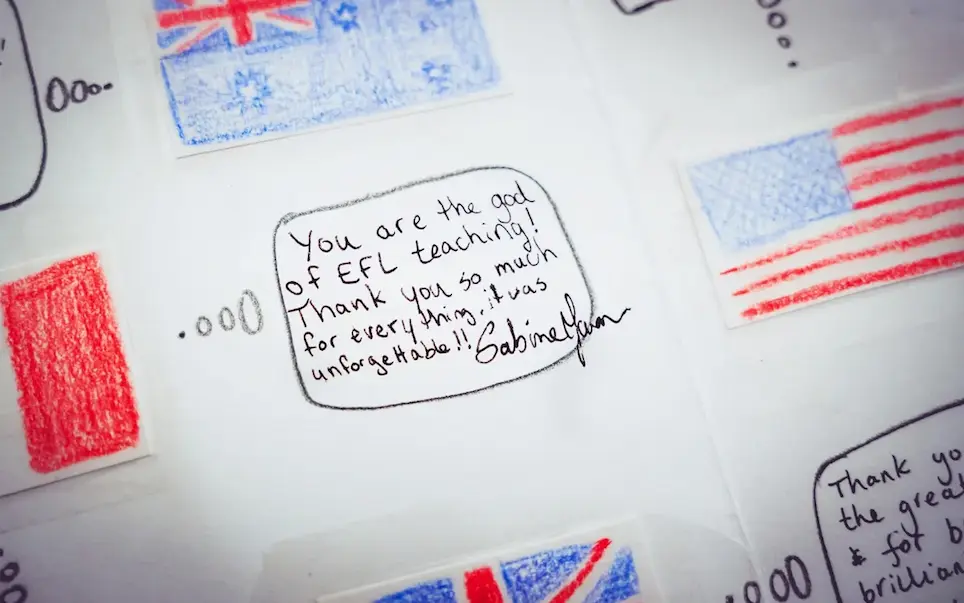 You are the god
of EFL teaching!
Thank you so much
for everything, it was
unforgettable!! Sabine
Thank yo
the grea
& for b
brillian